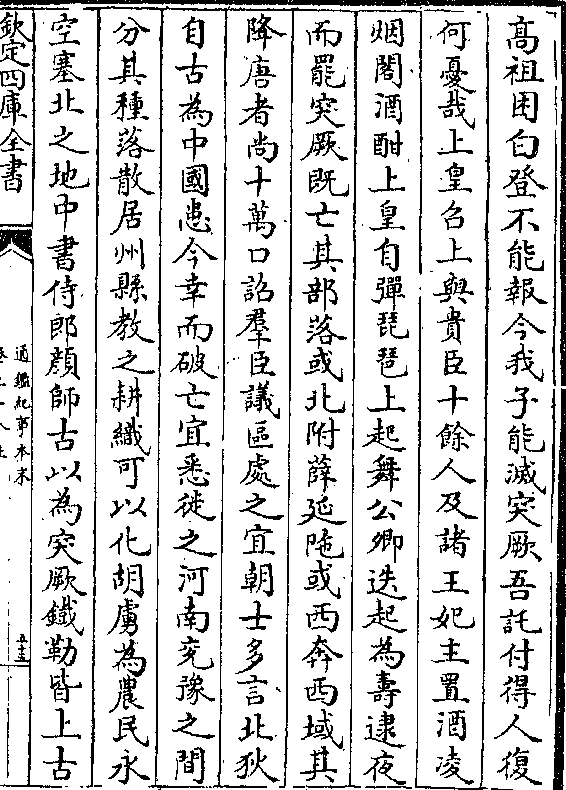 高祖困白登不能報今我子能滅突厥吾託付得人復
何憂哉上皇召上與貴臣十餘人及諸王妃主置酒凌
烟閣酒酣上皇自彈琵琶上起舞公卿迭起為壽逮夜
而罷突厥既亡其部落或北附薛延陁或西奔西域其
降唐者尚十萬口詔羣臣議區處之宜朝士多言北狄
自古為中國患今幸而破亡宜悉徙之河南兖豫之間
分其種落散居州縣教之耕織可以化胡虜為農民永
空塞北之地中書侍郎顔師古以為突厥鐵勒皆上古
欽定四庫全書
通鑑紀事本末